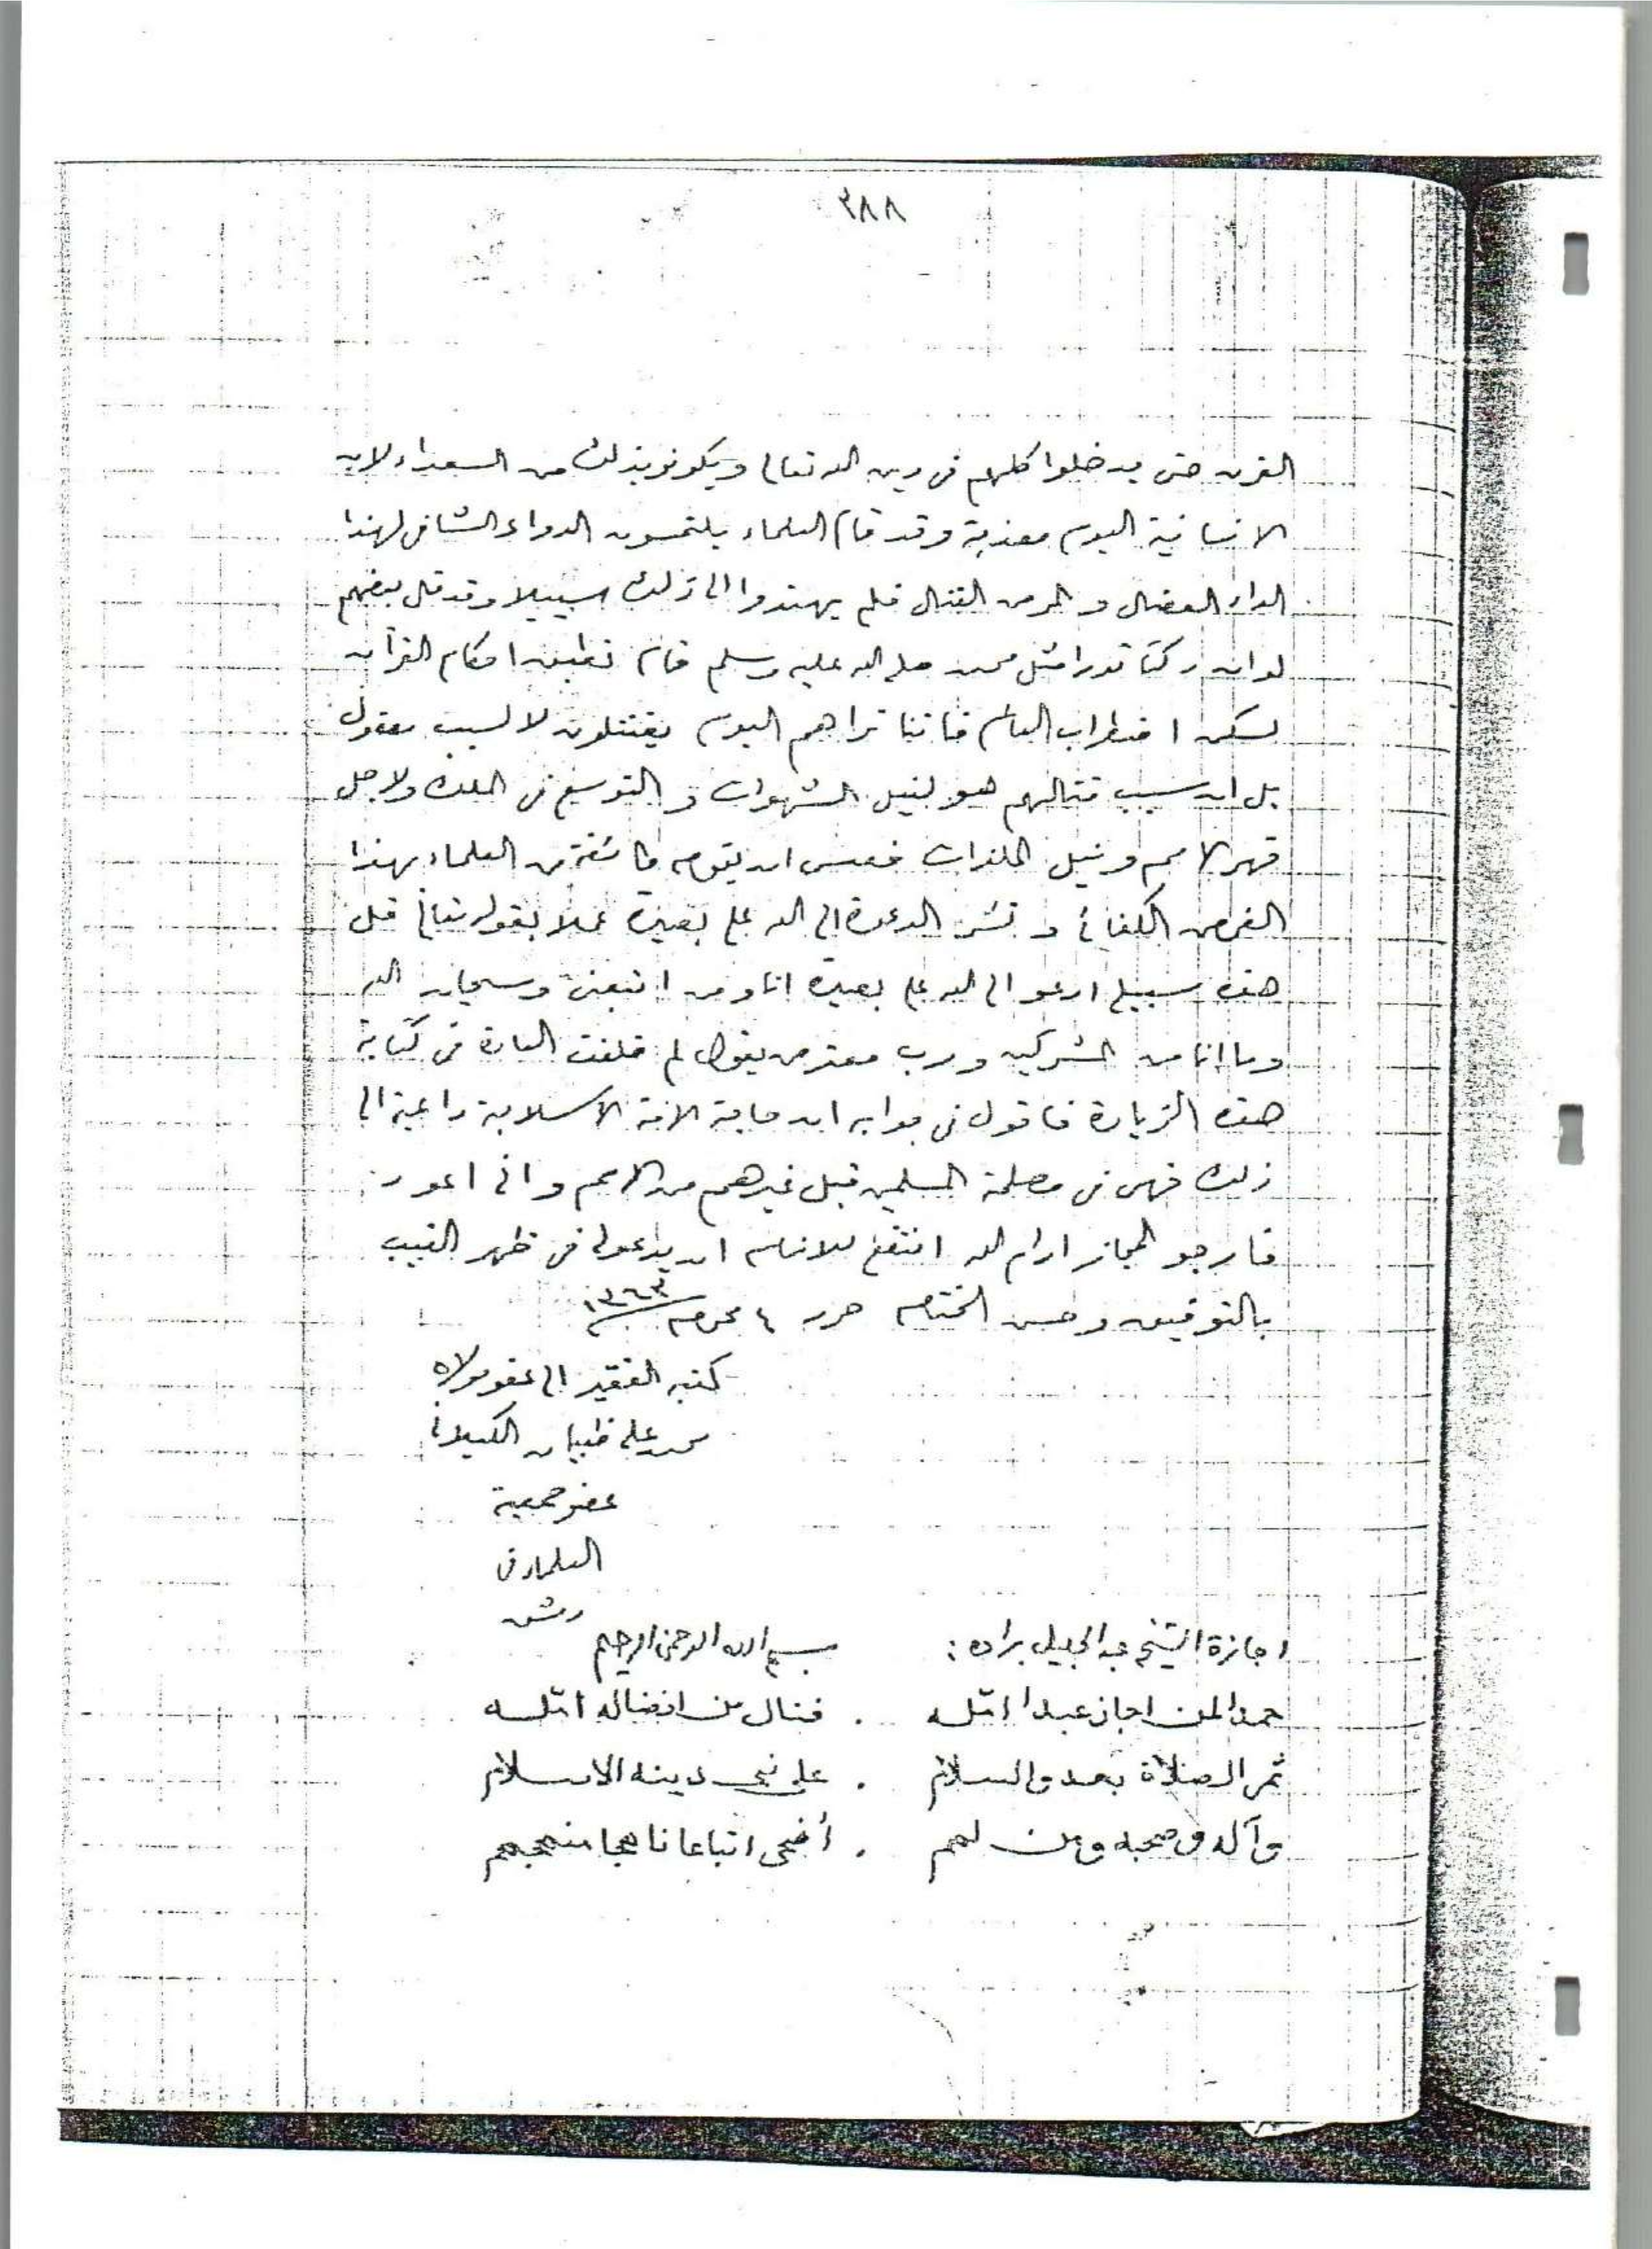 ٣٨٨
الغرب حتى يدخلوا كلهم في دين الله تعالى ويكونو بذلك من السعداء لان
الانسانية اليوم معذبة وقد قام العلماء يلتمسون الدواء الشافي لهذا
الداء العضال والمرض القتال فلم يهتدوا الى ذلك سبيلا وقد قال بعضهم
لو ان مثل محمد صلى الله عليه وسلم قام تطبيق احكام القرآن
لسكن اضطراب العالم فاننا تراهم اليوم يقتتلون لا لسبب معقول
بل ان سبب قتالهم هو لنيل الشهوات و التوسع في الملك ولاجل
قهر الامم ونيل الملذات فعسى ان يقوم طائفة من العلماء بهذا
الفرض الكفائي و تنشر الدعوة الى الله على بصيرة عملا بقوله تعالى قل
هذه سبيلي ادعو الى الله على بصيرة انا ومن اتبعني وسبحان الله
وما انا من المشركين ورب معترض يقول لم خلفت العادة في كتابة
هذه الزيادة فاقول في جوابه ان حاجة الامة الاسلامية داعية الى
ذلك فهي في مصلحة المسلمين قبل غيرهم من الامم واني اعود
فارجو المجاز ادام الله النفع للانام ان يدعولي في ظهر الغيب
بالتوفيق وحسن الختام حرر ٤ محرم ١٣٦٣
كتبه الفقير الى عفو مولاه
محمد علي ظبيان الكيلاني
عضو جمعية
العلماء في
دمشق
اجازة الشيخ عبد الجليل براده : بسم الله الرحمن الرحيم
حمدا لمن اجاز عبدا امّله . فنال من افضاله ما امّله
ثم الصلاة بعد والسلام . على نبي دينه الاسلام
وآله وصحبه ومن لهم . أضحى اتباعا ناهجا منهجهم